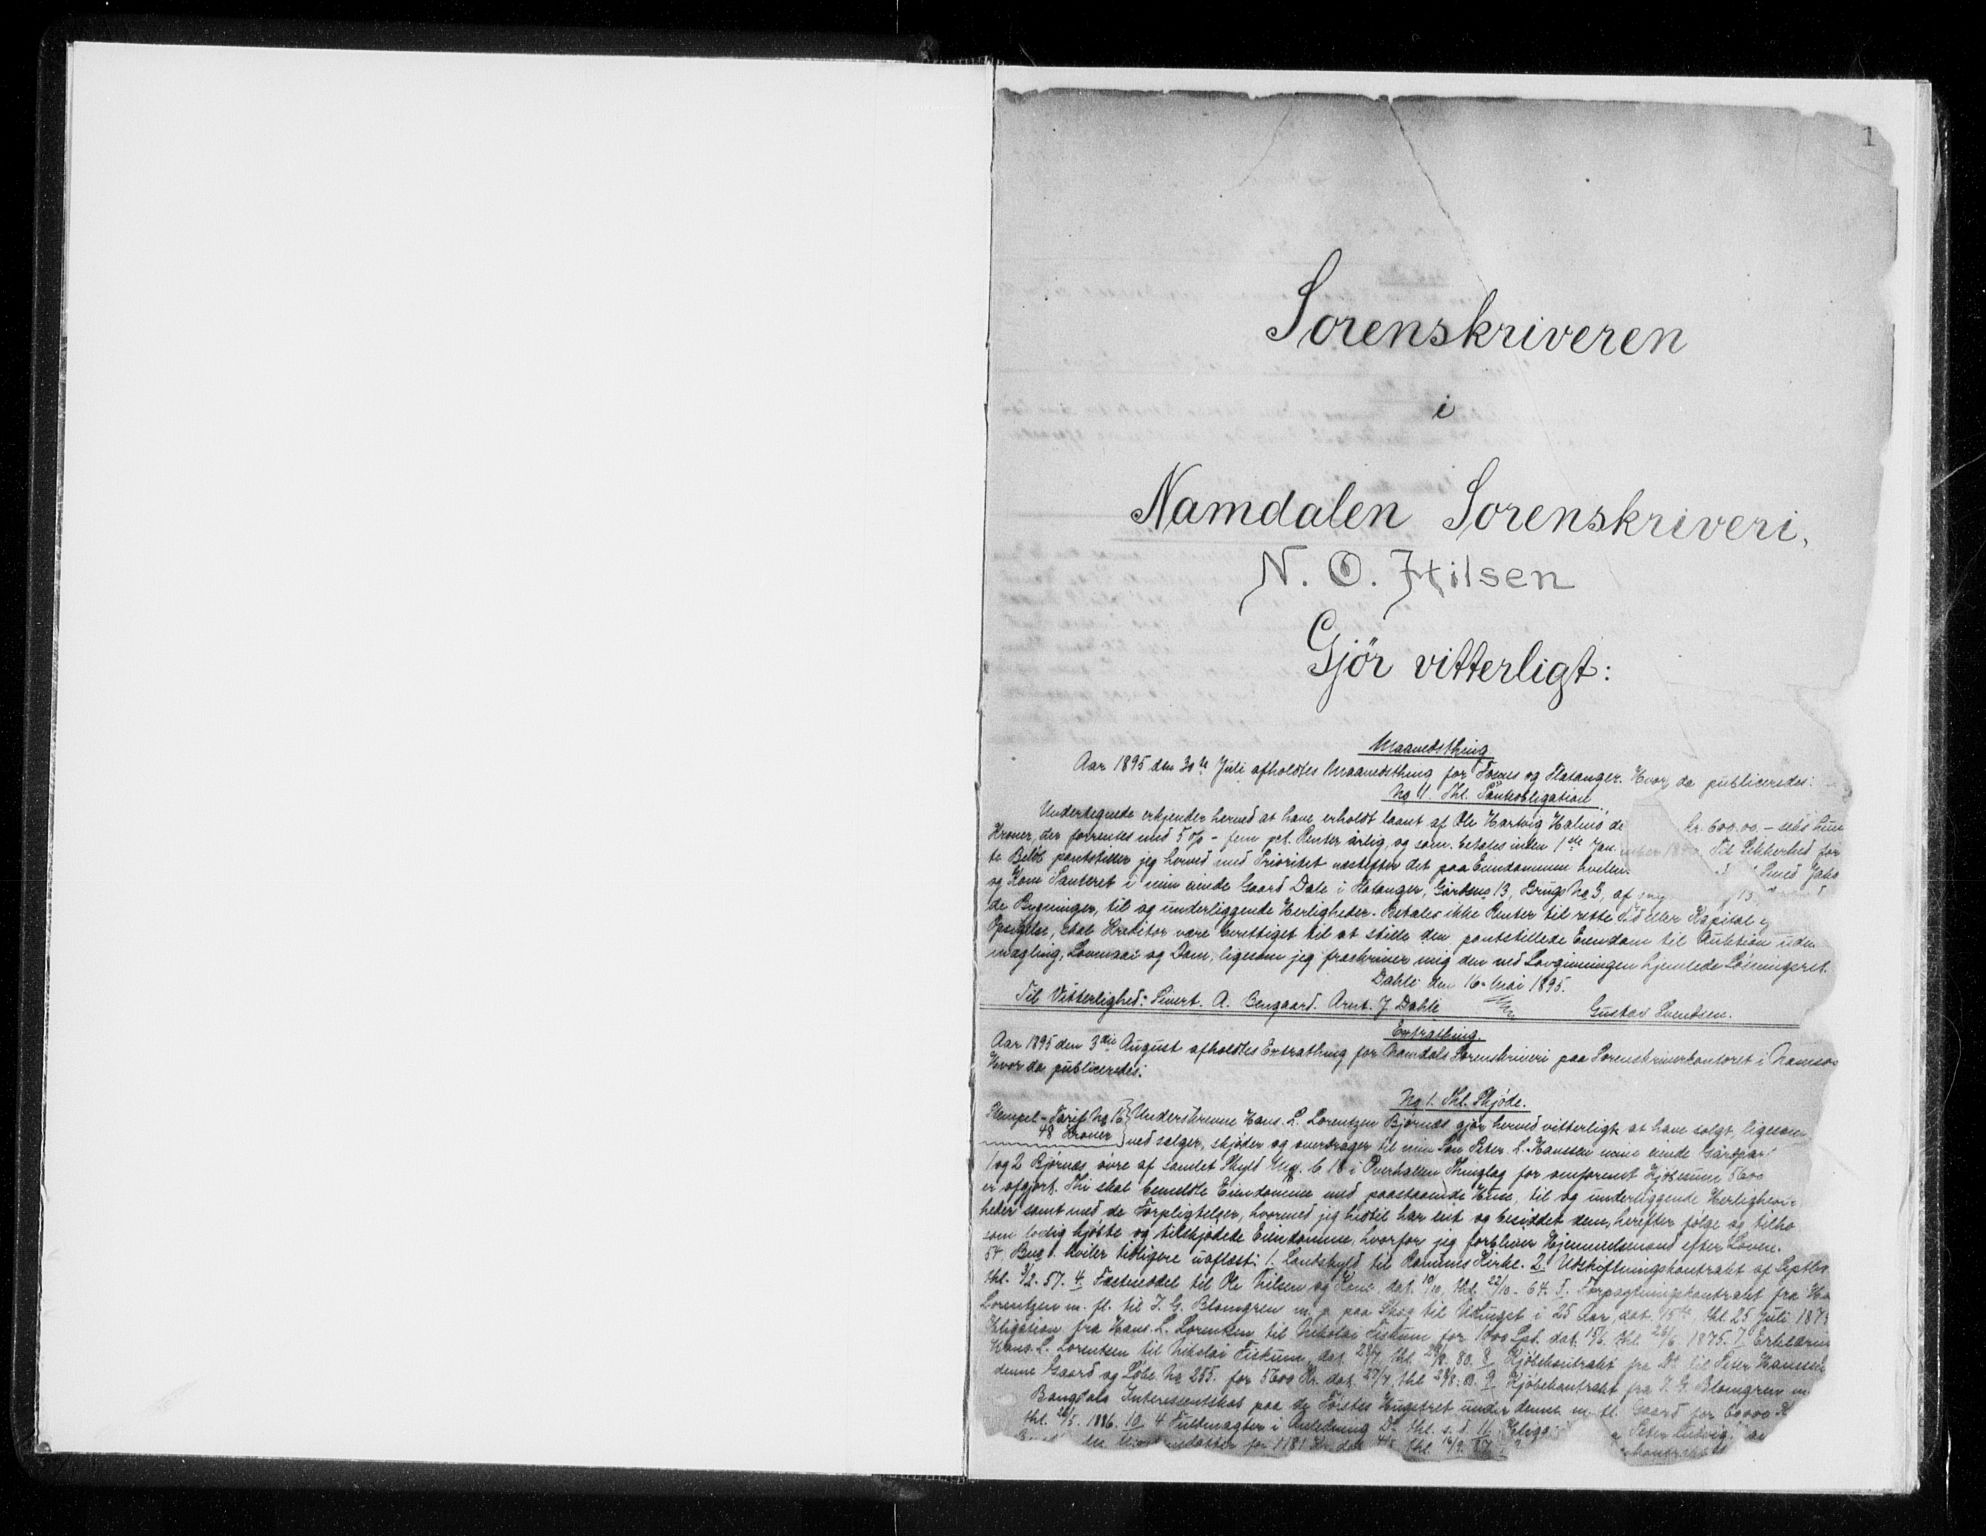 1
Sorenskriveren
i
Namdalen Sorenskriveri,
N. O. Hilsen
Gjör vitterligt:
Maanedsthing
Aar 1895 den 30te Juli afholdtes Maanedsthing for Fosnes og Flatanger. Hvor da publiceredes:
No 1. Thl. Pantobligation.
Undertegnede erkjender herved at have erholdt laant af Ole Hartvig Halmö de kr. 600.00. – seks hun
Kroner, der forrentes med 5 % – fem pct. Renter årlig, og som betales inden 1ste Jan Til Sikkerhed for
te Belöb pantstiller jeg herved med Prioritet næstefter det paa Eiendommen hvilen
og Pant i min eiende Gaard Dale i Flatanger, Gårdsno 13, Brugs No 3, af
de Bygninger, til og underliggende Herligheder. Betales ikke Renter til rette Tid eller Kapital e
Opsigelse, skal Kreditor være berettiget til at stille den pantstillede Eiendom til Auktion uden
mægling, Lovmaal og Dom, ligesom jeg fraskriver mig den ved Lovgivningen hjemlede Lösningsret.
Dahle den 16. Mai 1895.
Til Vitterlighed: Sivert. A. Bengaard. Arnt. J. Dahle Gustav Svendsen.
Extrathing.
Aar 1895 den 3die August afholdtes Extrathing for Namdals Sorenskriveri paa Sorenskriverkontoret i Namsos
Hvor da publiceredes:
No 1. Thl. Skjöde.
Stempel-Tarif No 16 Underskrevne Hans. L. Lorentzen Bjørnes gjör herved vitterligt at have solgt, ligesom
48 Kroner ved sælger, skjöder og overdrager til min Sön Peter. L. Hanssen mine eiende Gårdpar
1 og 2 Bjørnes övre af samlet Skyld Mk. 6 18 i Overhallen Thinglag for omforenet Kjöbesum 5600
er afgjort. Thi skal bemeldte Eiendomme med paastaaende Huse, til og underliggende Herlighe
heder samt med de Forpligtelser, hvormed jeg hidtil har eiet og besiddet dem, herefter fölge og tilhö
som lovlig kjöbte og tilskjödede Eiendomme, hvorfor jeg forbliver Hjemmelsmand efter Loven.
54. Brug 1. hviler tidligere uaflæst: 1. Landskyld til Ranems Kirke. 2. Udskiftningskontrakt af Septbr
thl. 3/2. 57. 4. Fæsteseddel til Ole Nilsen og Kone, dat. 10/10, thl. 22/10 - 64. 5. Forpagtningskontrakt fra Ha
Lorentzen m. fl. til J. G. Blomgren m. p. paa Skog til Udhuget i 25 Aar, dat. thl. 25 Juli 187
Obligation fra Hans. L. Lorentzen til Nikolai Fiskum for 1000 Spl. dat. 15/6. thl. 26/6 1875. 7. Erklæring
Hans. L. Lorentsen til Nikolai Fiskum, dat. 23/7 thl. 29/8. 80. 8. Kjöbekontrakt fra Do til Peter Hanssen
denne Gaard og Löbe No 255. for 5600 Kr. dat. 27/7, thl. 29/8. 80. 9. Kjöbekontrakt fra J. G. Blomgren m
Bangdals Interessentskab paa de Förstes Hugstret under denne m. fl. Gaard for 60000 K
thl. 26/5. 1886. 10. 4 Fuldmagter i Anledning Do thl. s. d. 11. Obliga Peter Ludvig.
for 1181 Kr. dat. 4/8. thl. 16/9. 87
kontrakt